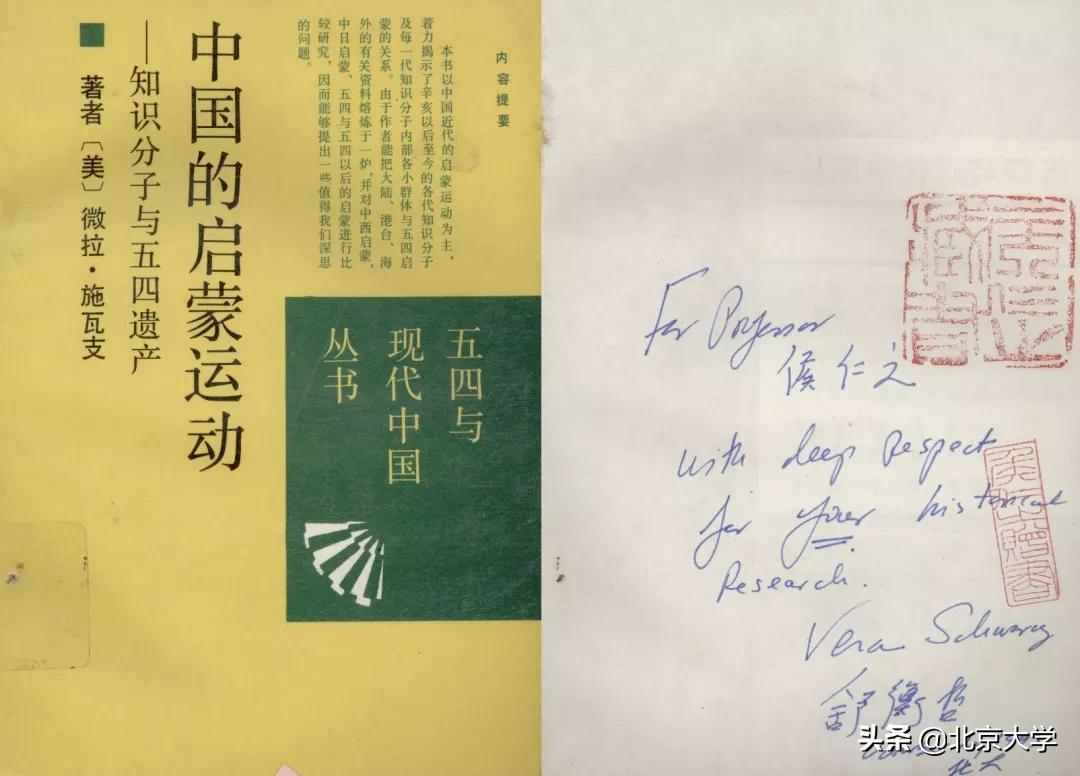 中国的启蒙运动
——知识分子与五四遗产
著者〔美〕微拉·施瓦支
内容提要
本书以中国近代的启蒙运动为主,
着力揭示了辛亥以后至今的各代知识分子
及每一代知识分子内部各小群体与五四启
蒙的关系。由于作者能把大陆、港台、海
外的有关资料熔炼于一炉,并对中西启蒙、
中日启蒙、五四与五四以后的启蒙进行比
较研究,因而能够提出一些值得我们深思
的问题。
五四与
现代中国
丛书
For Professor
侯仁之
with deep Respect
for your historical
Research.
Vera Schwarcz
舒衡哲
北大
侯仁之
藏书
侯仁之赠书
头条 @北京大学